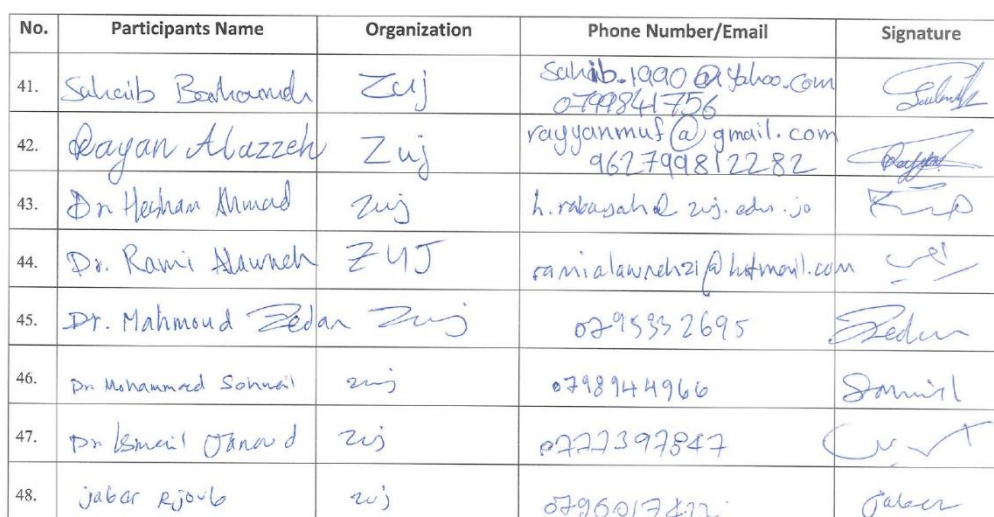 No. Participants Name Organization Phone Number/Email Signature
41. Sahaib Zuj Sahaib.1990@yahoo.com
0799841756
42. Rayan Alazzeh Zuj rayyanmuf@gmail.com
962799812282
43. Dr Hesham Ahmad zuj h.rabayah@zuj.edu.jo
44. Dr. Rami Alawneh ZUJ ramialawneh21@hotmail.com
45. Dr. Mahmoud Zedan Zuj 0795352695 Zedan
46. Dr. Mohammad zuj 0798944966
47. Dr Ismail zuj 0777397847
48. jabar Rjoub zuj jabar